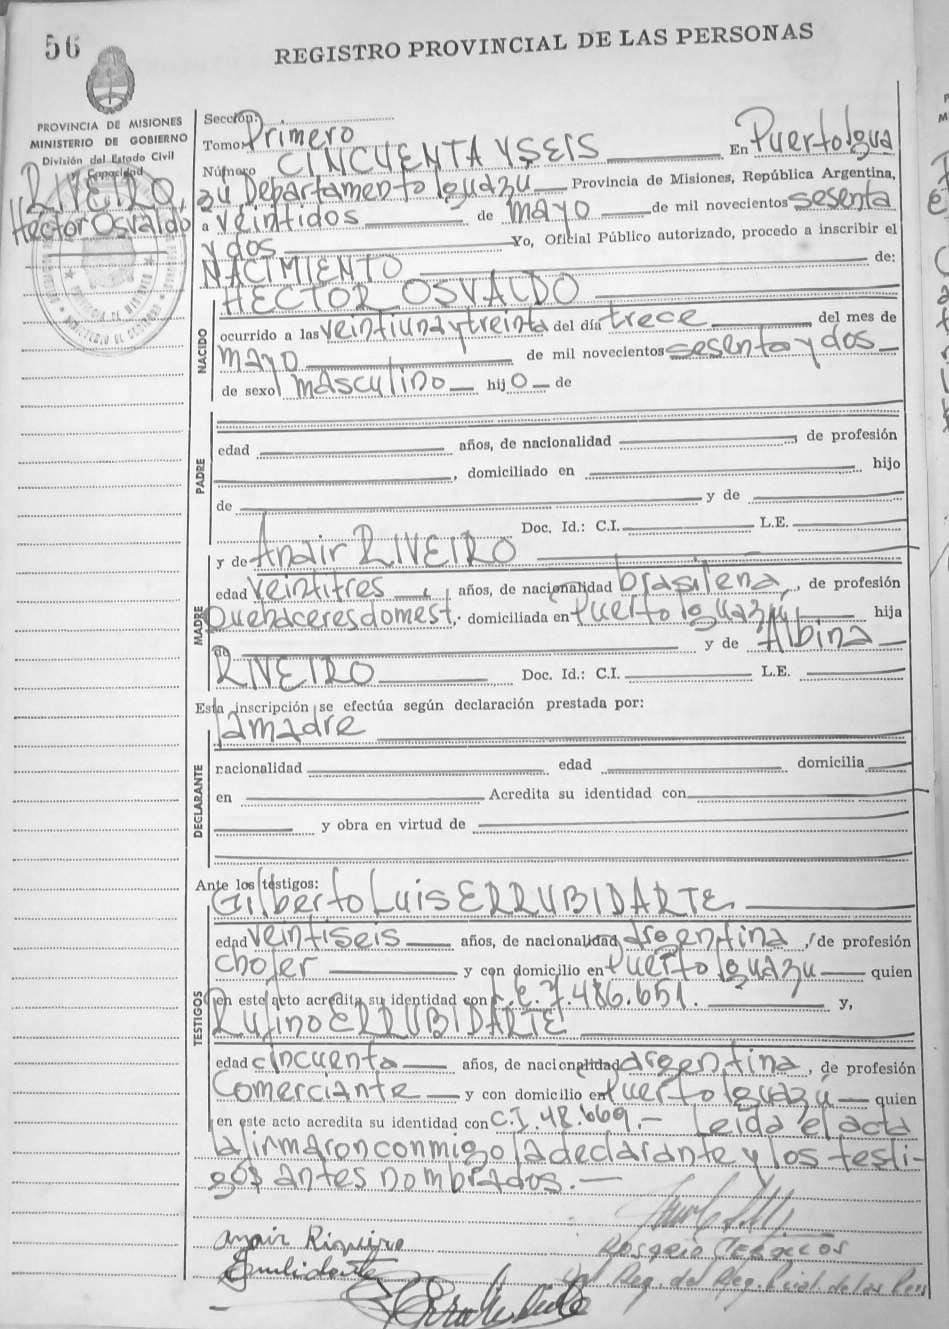 56
REGISTRO PROVINCIAL DE LAS PERSONAS
PROVINCIA DE MISIONES
MINISTERIO DE GOBIERNO
División del Estado Civil
y Capacidad
RIVEIRO,
Héctor Osvaldo
Sección:
Tomo: Primero
Número CINCUENTA Y SEIS En Puerto Igua
zu Departamento Iguazú Provincia de Misiones, República Argentina,
a veintidos de mayo de mil novecientos sesenta
y dos Yo, Oficial Público autorizado, procedo a inscribir el
NACIMIENTO de:
HECTOR OSVALDO
NACIDO
ocurrido a las veintiuna y treinta del día trece del mes de
mayo de mil novecientos sesenta y dos
de sexo masculino hijo de
PADRE
edad años, de nacionalidad , de profesión
, domiciliado en , hijo
de y de
Doc. Id.: C.I. L.E.
MADRE
y de Anair RIVEIRO
edad veintitres años, de nacionalidad brasilena, de profesión
Quehaceres domest. domiciliada en Puerto Iguazú hija
de y de Albina
RIVEIRO Doc. Id.: C.I. L.E.
Esta inscripción se efectúa según declaración prestada por:
la madre
DECLARANTE
nacionalidad edad domicilia
en Acredita su identidad con
y obra en virtud de
Ante los testigos:
TESTIGOS
Gilberto Luis ERRUBIDARTE,
edad veintiseis años, de nacionalidad argentina, de profesión
Chofer y con domicilio en Puerto Iguazu quien
en este acto acredita su identidad con L.E. 7.486.651. y,
Rufino ERRUBIDARTE
edad cincuenta años, de nacionalidad argentina, de profesión
Comerciante y con domicilio en Puerto Iguazú quien
en este acto acredita su identidad con C.I. 48.669.- Leida el acta
la firmaron conmigo la declarante y los testi-
gos antes nombrados.-
Anair Riqueiro
Rogerio
del Reg. Pcial. de las Pers